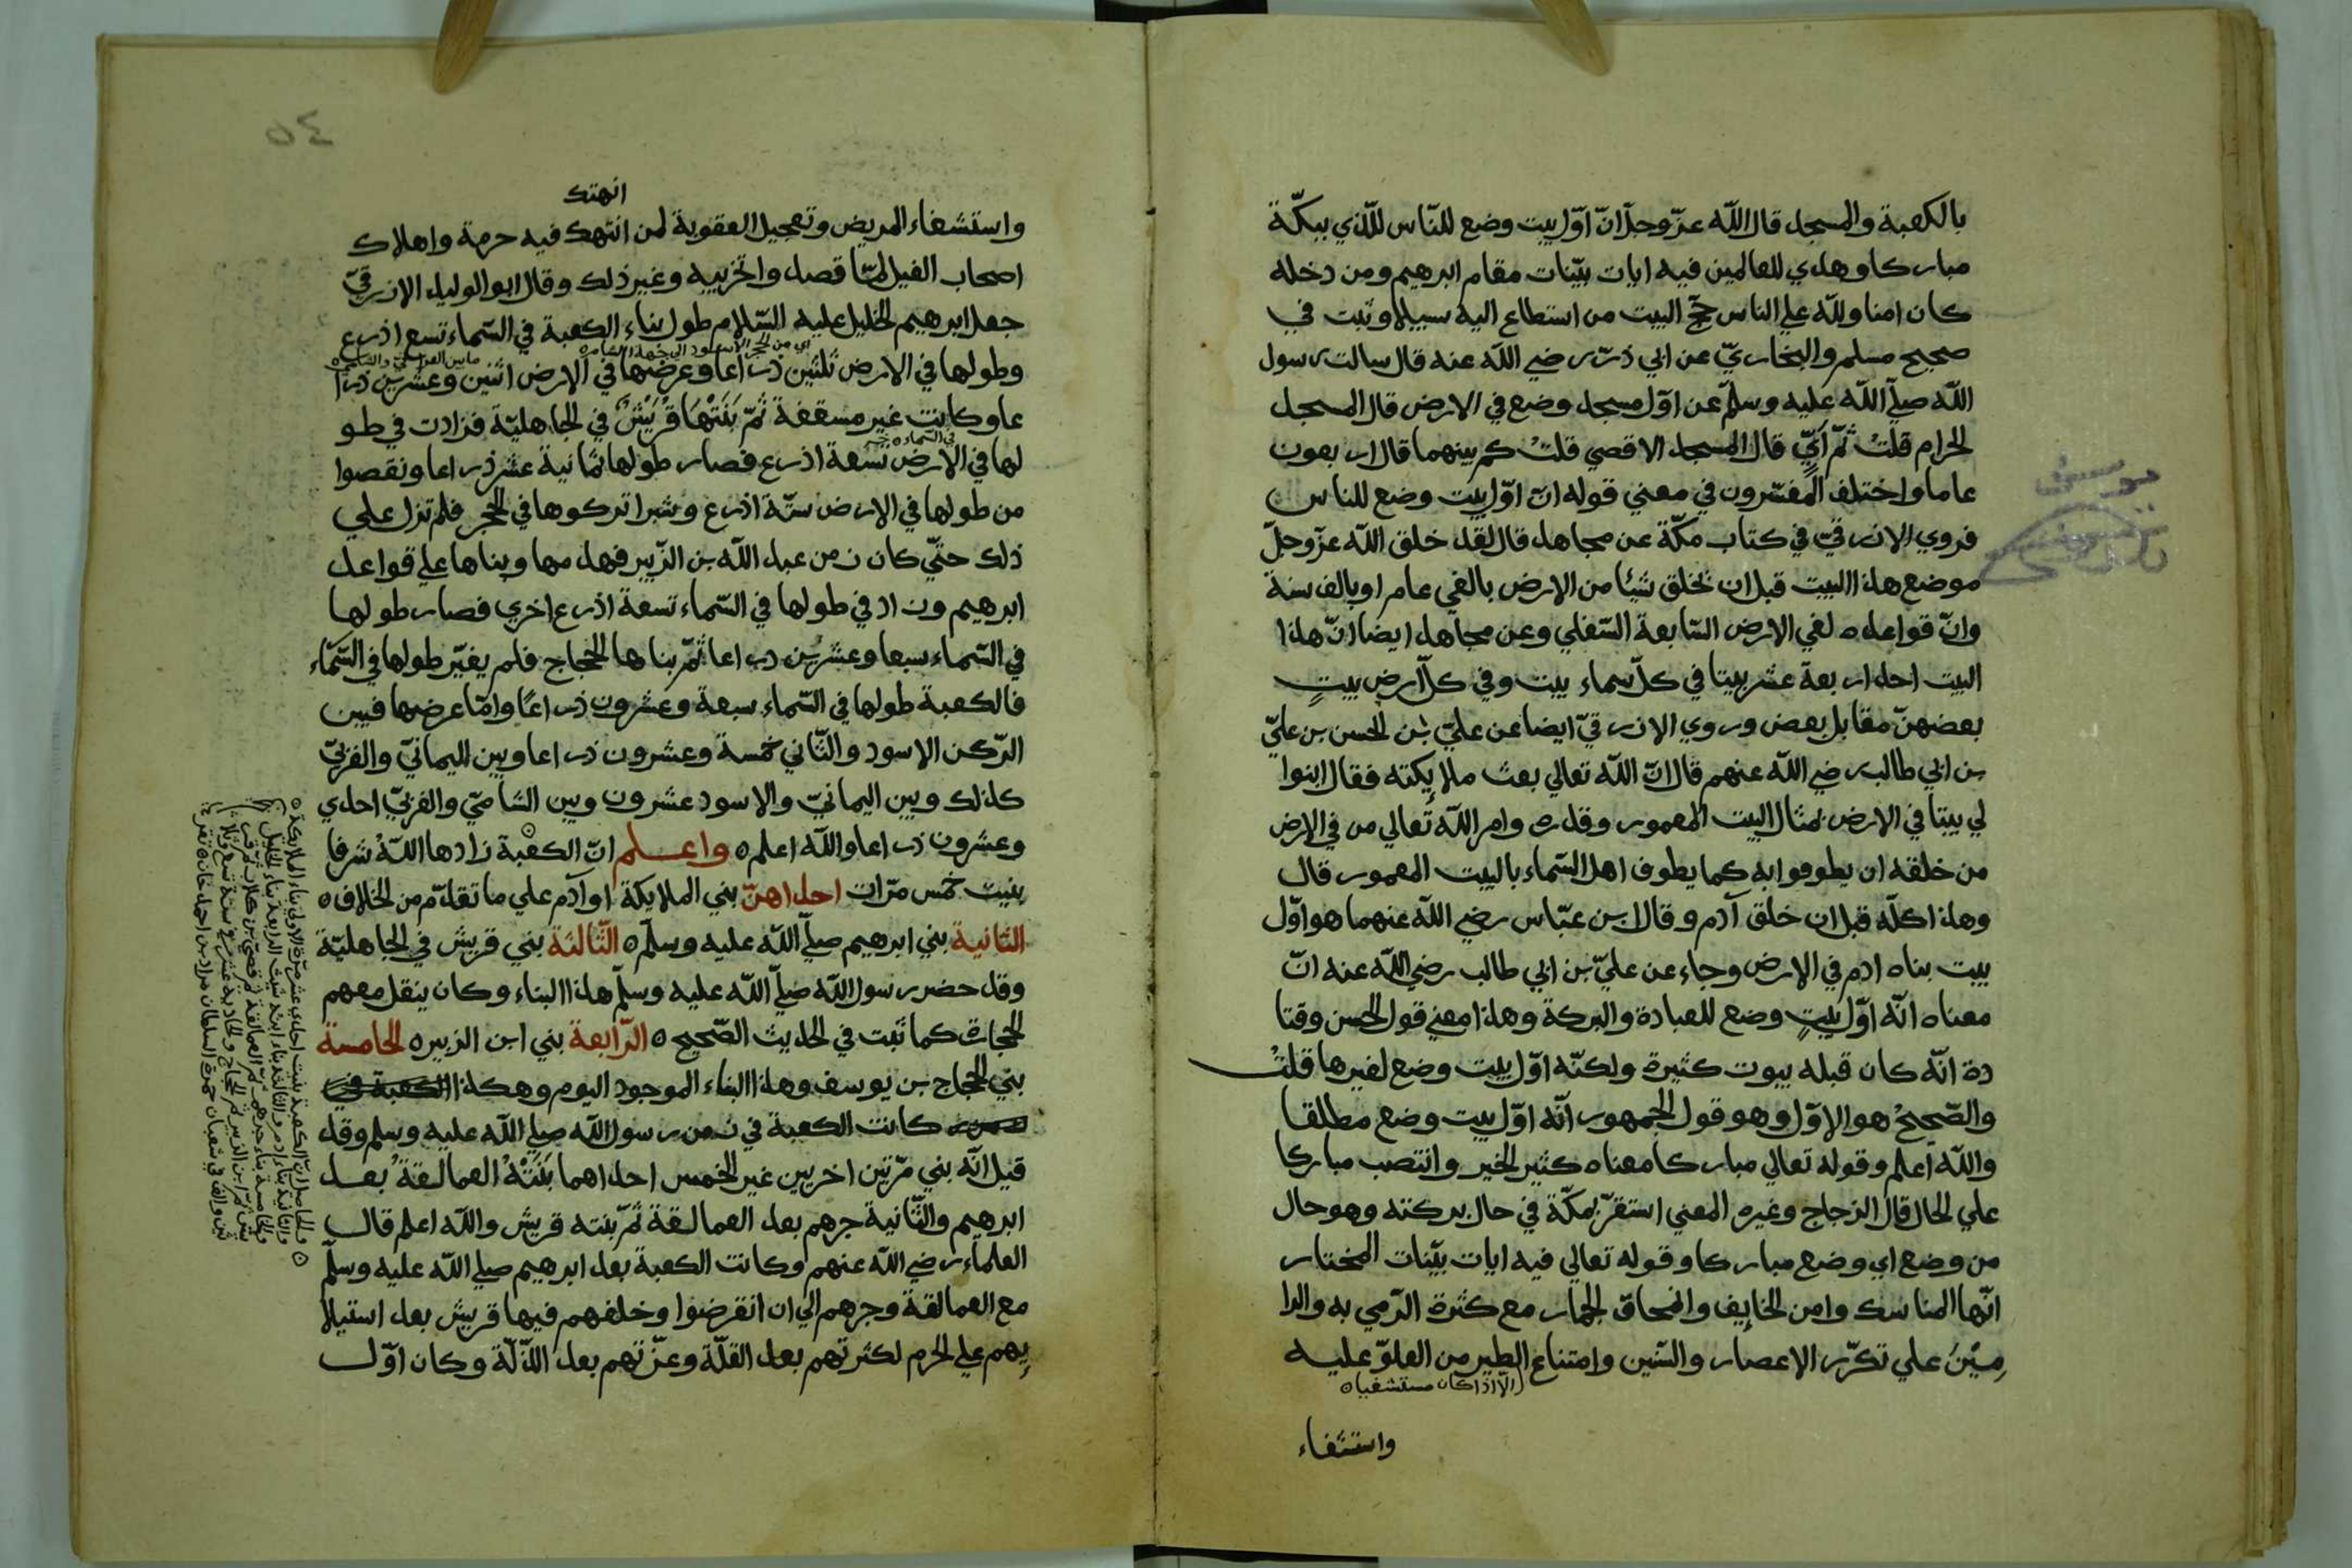 بالكعبة والمسجد قال الله عزّ وجلّ انّ اوّل بيت وضع للنّاس للّذي ببكّة
مباركا وهدي للعالمين فيه ايات بيّنات مقام ابرهيم ومن دخله
كان امنا ولله علي الناس حجّ البيت من استطاع اليه سبيلا وثبت في
صحيح مسلم والبخاريّ عن ابي ذرّ رضي الله عنه قال سالت رسول
الله صلّي الله عليه وسلّم عن اوّل مسجد وضع في الارض قال المسجد
الحرام قلت ثمّ ايّ قال المسجد الاقصي قلت كم بينهما قال اربعون
عاما واختلف المفسّرون في معني قوله انّ اوّل بيت وضع للناس
فروي الازرقيّ في كتاب مكّة عن مجاهد قال لقد خلق الله عزّ وجلّ
موضع هذا البيت قبل ان يخلق شيئا من الارض بالفي عام او بالف سنة
وانّ قواعده لفي الارض السّابعة السّفلي وعن مجاهد ايضا انّ هذا
البيت احد اربعة عشر بيتا في كلّ سماء بيت وفي كلّ ارض بيتٍ
بعضهنّ مقابل بعض وروي الازرقيّ ايضا عن عليّ بن الحسن بن عليّ
بن ابي طالب رضي الله عنهم قال انّ الله تعالي بعث ملايكته فقال ابنوا
لي بيتا في الارض بمثال البيت المعمور وقدره وامر الله تعالي من في الارض
من خلقه ان يطوفوا به كما يطوف اهل السّماء بالبيت المعمور قال
وهذا كلّه قبل ان خلق آدم وقال ابن عبّاس رضي الله عنهما هو اوّل
بيت بناه ادم في الارض وجاء عن عليّ بن ابي طالب رضي الله عنه انّ
معناه انّه اوّل بيتٍ وضع للعبادة والبركة وهذا معني قول الحسن وقتا
دة انّه كان قبله بيوت كثيرة ولكنّه اوّل بيت وضع لغيرها قلت
والصّحيح هو الاوّل وهو قول الجمهور انّه اوّل بيت وضع مطلقا
والله اعلم وقوله تعالي مباركا معناه كثير الخير وانتصب مباركا
علي الحال قال الزجاج وغيره المعني استقرّ بمكّة في حال بركته وهو حال
من وضع اي وضع مباركا وقوله تعالي فيه ايات بيّنات المختار
انّها المناسك وامن الخايف وانمحاق الجمار مع كثرة الرّمي به والدا
مين علي تكرّر الاعصار والسّنين وامتناع الطير من العلوّ عليه
الّا اذا كان مستشفيا
واستشفاء
٥٤
انهتك
واستشفاء المريض وتعجيل العقوبة لمن انتهك فيه حرمة واهلاك
اصحاب الفيل لمّا قصدوا تخريبه وغير ذلك وقال ابو الوليد الازرقيّ
جعل ابرهيم الخليل عليه السّلام طول بناء الكعبة في السّماء تسع اذرع
اي من الحجر الاسود الي جهة الشام
ما بين الغربيّ والشاميّ
وطولها في الارض ثلثين ذراعا وعرضها في الارض اثنين وعشرين ذرا
عا وكانت غير مسقفة ثمّ بَنَتْهَا قُرَيْشٌ في الجاهليّة فزادت في طو
في السّماء
لها في الارض تسعة اذرع فصار طولها ثمانية عشر ذراعا ونقصوا
من طولها في الارض ستّة اذرع وشبرا تركوها في الحجر فلم تزل علي
ذلك حتّي كان زمن عبد الله بن الزّبير فهدمها وبناها علي قواعد
ابرهيم وزاد في طولها في السّماء تسعة اذرع اخري فصار طولها
في السّماء سبعا وعشرين ذراعا ثمّ بناها الحجّاج فلم يغيّر طولها في السّماء
فالكعبة طولها في السّماء سبعة وعشرون ذراعًا وامّا عرضها فبين
الرّكن الاسود والثّاني خمسة وعشرون ذراعا وبين اليمانيّ والغربيّ
كذلك وبين اليمانيّ والاسود عشرون وبين الشاميّ والغربيّ احدي
وعشرون ذراعا والله اعلم ه واعلم انّ الكعبة زادها الله شرفا
بنيت خمس مرّات احداهنّ بني الملايكة او آدم علي ما تقدّم من الخلاف ه
الثّانية بني ابرهيم صلّي الله عليه وسلّم ه الثّالثة بني قريش في الجاهليّة
وقد حضر رسول الله صلّي الله عليه وسلّم هذا البناء وكان ينقل معهم
الحجارة كما ثبت في الحديث الصّحيح ه الرّابعة بني ابن الزبير ه الخامسة
بني الحجّاج بن يوسف وهذا البناء الموجود اليوم وهكذا الكعبة في
كانت الكعبة في زمن رسول الله صلي الله عليه وسلم وقد
قيل انّه بني مرّتين اخريين غير الخمس احداهما بَنَتْهُ العمالقة بعد
ابرهيم والثّانية جرهم بعد العمالقة ثمّ بنته قريش والله اعلم قال
العلماء رضي الله عنهم وكانت الكعبة بعد ابرهيم صلي الله عليه وسلّم
مع العمالقة وجرهم الي ان انقرضوا وخلفهم فيها قريش بعد استيلا
يهم علي الحرم لكثرتهم بعد القلّة وعزّتهم بعد الذلّة وكان اوّل
والحاصل انّ الكعبة بنيت احدي عشر مرّة الاولي بناء الملايكة
والثانية بناء ادم والثالثة بناء ابنه شيث الرابعة بناء الخليل
والخامسة بناء جرهم ثمّ العمالقة ثمّ قصيّ بن كلاب ثمّ قريش
ثمّ ابن الزبير ثمّ الحجّاج والحادية عشر في سنة تسع وثلا
ثين والف في شعبان حضرة السلطان مراد بن احمد خان